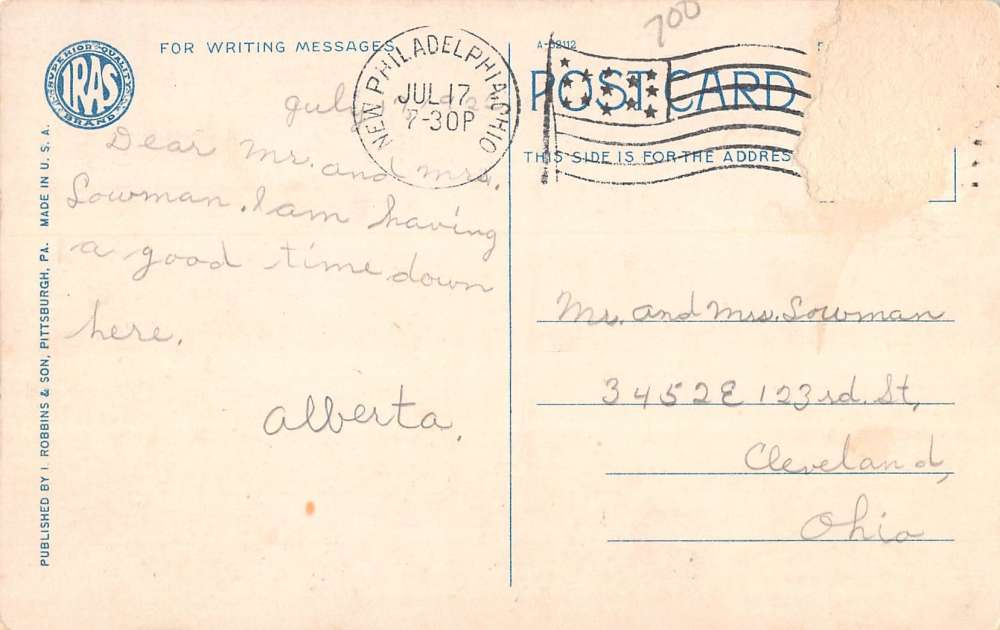 700
A-52112
FOR WRITING MESSAGES
POST CARD
THIS SIDE IS FOR THE ADDRES
SUPERIOR QUALITY
IRAS
BRAND
NEW PHILADELPHIA, OHIO
JUL 17
7-30P
July
Dear Mr. and Mrs.
Lowman. I am having
a good time down
here.
Alberta.
Mr. and Mrs. Lowman
3452 E 123rd. St,
Cleveland,
Ohio
PUBLISHED BY I. ROBBINS & SON, PITTSBURGH, PA. MADE IN U. S. A.